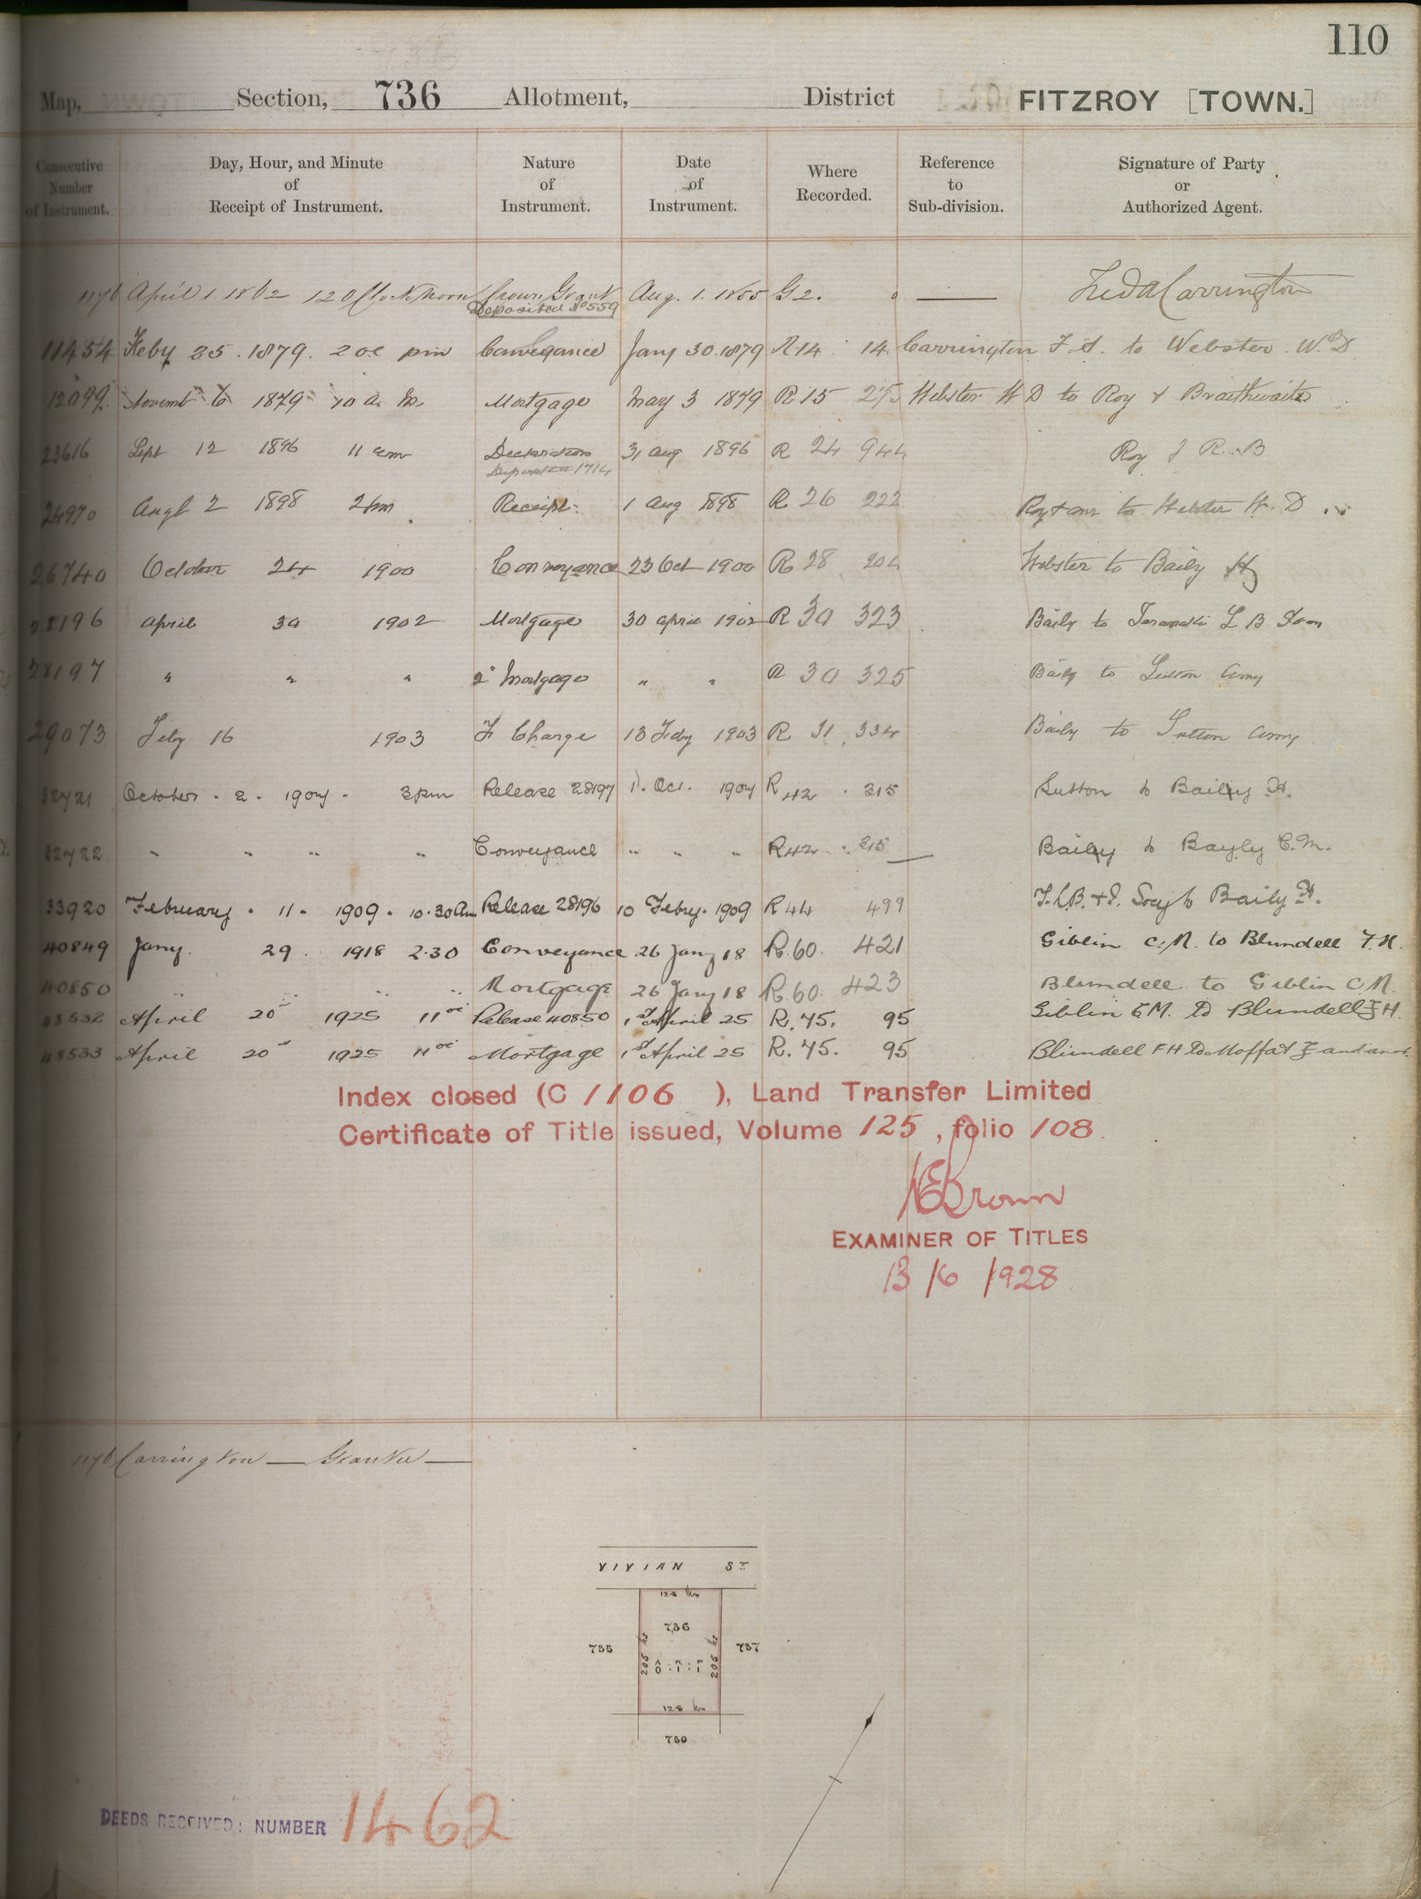 110
Map, Section, 736 Allotment, District FITZROY [TOWN.]
Consecutive Number of Instrument. Day, Hour, and Minute of Receipt of Instrument. Nature of Instrument. Date of Instrument. Where Recorded. Reference to Sub-division. Signature of Party or Authorized Agent.
1176 April 1 1862 12 O'Clock Noon Crown Grant Aug. 1. 1855 G 2. Fred A Carrington
Deposited No 559
11454 Feby 25. 1879. 2 oc pm Conveyance Jany 30. 1879 R 14 14 Carrington F. A. to Webster W. D
12099 Novemb 6 1879 10 a. m. Mortgage May 3 1879 R 15 Webster W D to Roy & Braithwaite
23616 Sept 12 1896 11 am Declaration 31 aug 1896 R 24 944 Roy J R. B
Deposited 1714
24970 Augt 2 1898 2 pm Receipt 1 Aug 1898 R 26 222 to Webster W. D
26740 October 24 1900 Conveyance 23 Oct 1900 R 28 204 Webster to Baily H
28196 april 30 1902 Mortgage 30 april 1902 R 30 323 Baily to Taranaki L B
28197 " " " 2d Mortgage " " R 30 325 Baily to Sutton Amy
29073 Feby 16 1903 F Charge 13 Feby 1903 R 31 334 Baily to Sutton Amy
32721 October. 2. 1907. 3 pm Release 28197 1. Oct. 1907 R 42. 215 Sutton to Baily H.
32722 " " " " Conveyance " " " R 42. 215 Baily to Bayly C. M.
33920 February. 11. 1909. 10.30 Am Release 28196 10 Febry. 1909 R 44 499 T. L. B. & I. Socy to Baily H.
40849 Jany. 29 1918 2.30 Conveyance 26 Jany 18 R. 60. 421 Giblin C. M. to Blundell F. H.
40850 " " " " Mortgage 26 Jany 18 R. 60. 423 Blundell to Giblin C M.
48532 April 20th 1925 11 oc Release 40850 1st April 25 R. 75. 95 Giblin C M. to Blundell F H.
48533 April 20th 1925 11 oc Mortgage 1st April 25 R. 75. 95 Blundell F H to Moffat F and anor.
Index closed (C 1106 ), Land Transfer Limited
Certificate of Title issued, Volume 125, folio 108.
Brown
EXAMINER OF TITLES
13/6/1928
1176 Carrington — Grantee —
VIVIAN ST
128 lks
736
735 737
205 lks 205 lks
A R P
0 : 1 : 1
128 lks
750
DEEDS RECEIVED: NUMBER 1462